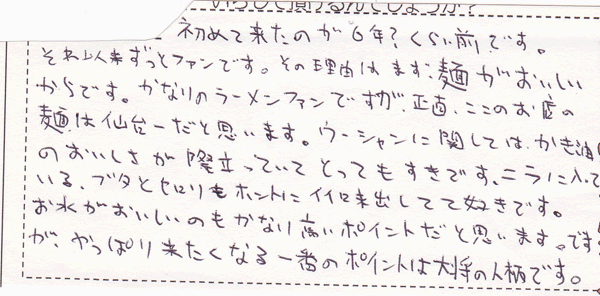 いらして頂けるんでしょうか?
初めて来たのが6年?くらい前です。
それ以来ずっとファンです。その理由はまず、麺がおいしい
からです。かなりのラーメンファンですが、正直、ここのお店の
麺は仙台一だと思います。ウーシャンに関しては、かき油
のおいしさが際立っていてとってもすきです。ニラに入って
いる、ブタとセロリもホントにイイ味出してて好きです。
お水がおいしいのもかなり高いポイントだと思います。です
が、やっぱり来たくなる一番のポイントは大将の人柄です。